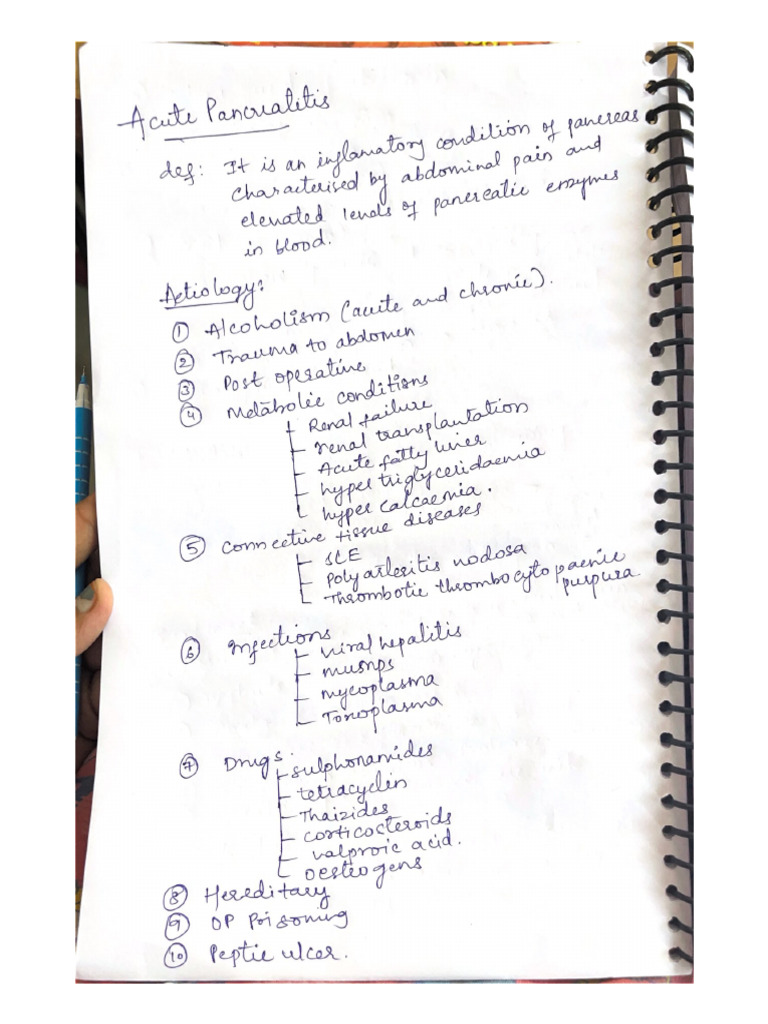 Acute Pancreatitis
def: It is an inflamatory condition of pancreas
characterised by abdominal pain and
elevated levels of pancreatic enzymes
in blood.
Aetiology:
① Alcoholism (acute and chronic).
② Trauma to abdomen
③ Post operative
④ Metabolic conditions
Renal failure
renal transplantation
Acute fatty liver
hyper triglyceridaemia
hyper calcaemia.
⑤ Connective tissue diseases
SLE
Polyarteritis nodosa
Thrombotic thrombocytopaenic
purpura.
⑥ Infections
Viral hepatitis
mumps
mycoplasma
Toxoplasma
⑦ Drugs.
sulphonamides
tetracyclin
Thaizides
corticocteroids
valproic acid.
oestrogens
⑧ Hereditary
⑨ OP Poisoning
⑩ Peptic ulcer.